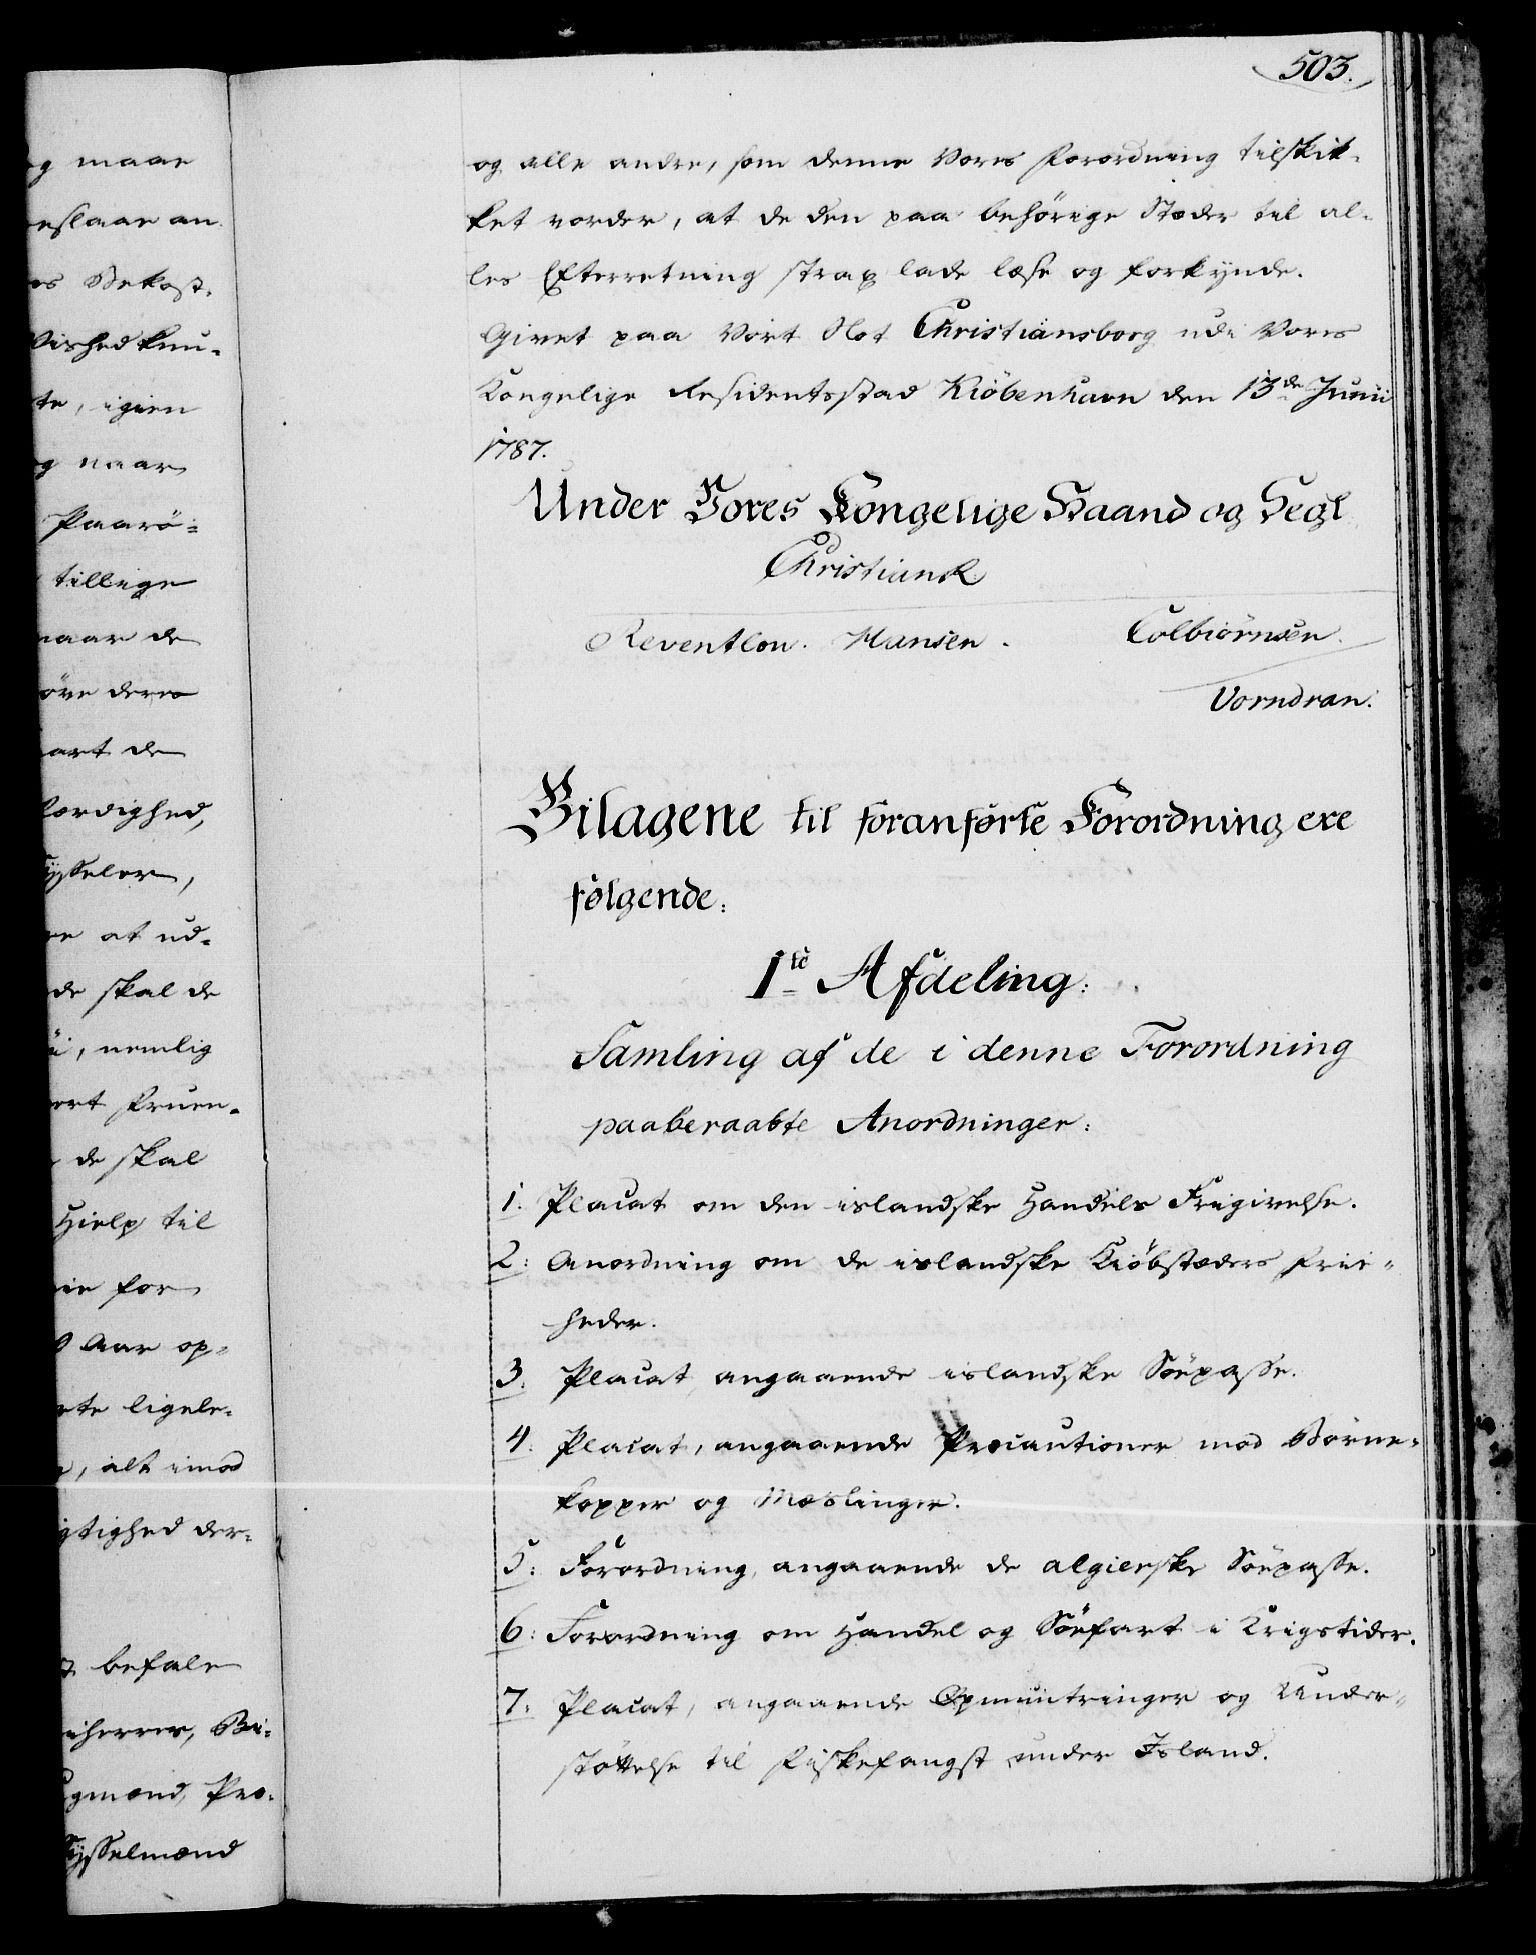 503.
og maae
eslaae an
es Bekost-
Vished kun-
te, igien
og naar
Paarö-
tillige
naar de
öve deres
art de
færdighed,
Sysseler,
re at ud-
de skal de
i, nemlig
ort Pruen-
de skal
Hielp til
ie for
Aar op-
ete ligele-
, alt imod
igtighed der-
befale
iherrer, Bi-
gmænd, Pro-
Sysselmænd
og alle andre, som denne Vores Forordning tilskik-
ket vorder, at de den paa behörige Stæder til al-
les Efterretning strax lade læse og forkynde.
Givet paa Vort Slot Christiansborg udi Vores
Kongelige Residentsstad Kiöbenhavn den 13de Junii
1787.
Under Vores Kongelige Haand og Segl
Christian R
Reventlow. Hansen. Colbiörnsen.
Vorndran.
Bilagene til foranförte Forordning ere
fölgende:
1te Afdeling:
Samling af de i denne Forordning
paaberaabte Anordninger:
1. Placat om den islandske Handels Frigivelse.
2: Anordning om de islandske Kiöbstæders Frie-
heder.
3. Placat, angaaende islandske Söepasse.
4. Placat, angaaende Precautioner mod Börne-
kopper og Mæslinger.
5: Forordning, angaaende de algierske Söepasse.
6: Forordning om Handel og Söefart i Krigstider.
7: Placat, angaaende Opmuntringer og Under-
stöttelse til Fiskefangst under Island.